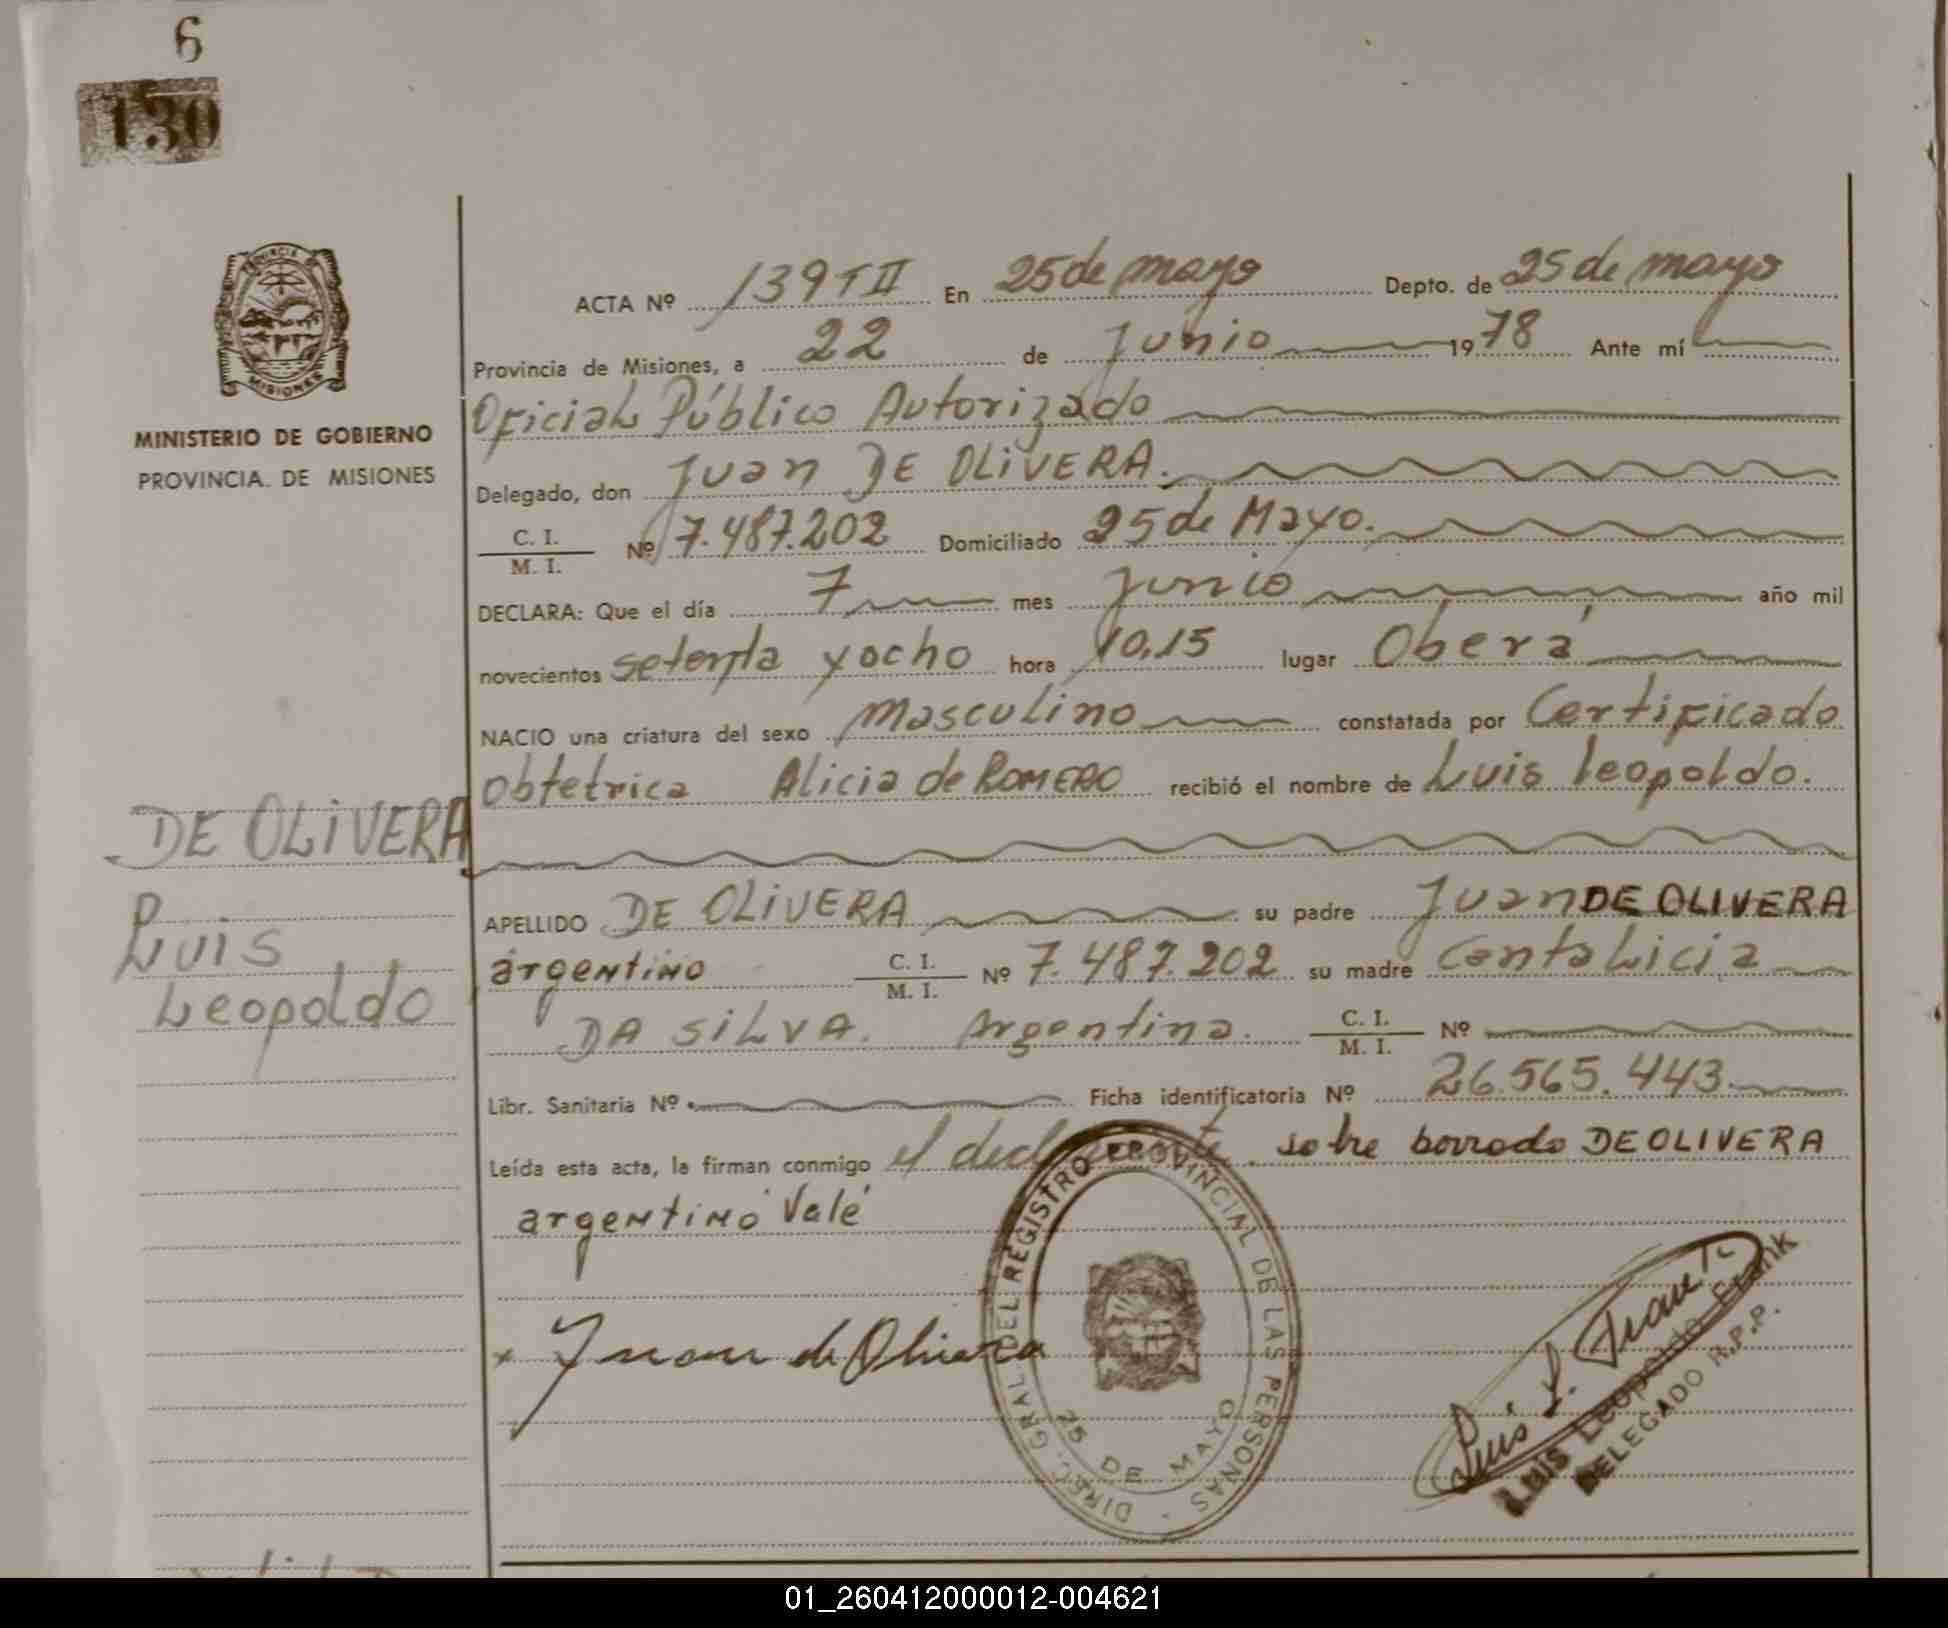 6
130
PROVINCIA DE
MISIONES
MINISTERIO DE GOBIERNO
PROVINCIA. DE MISIONES
ACTA Nº 139 T II En 25 de mayo Depto. de 25 de mayo
Provincia de Misiones, a 22 de Junio 1978 Ante mí
Oficial Público Autorizado
Delegado, don Juan DE OLIVERA.
C. I.
M. I. Nº 7.487.202 Domiciliado 25 de Mayo.
DECLARA: Que el día 7 mes Junio año mil
novecientos setenta y ocho hora 10,15 lugar Oberá
NACIO una criatura del sexo Masculino constatada por Certificado
Obtetrica Alicia de ROMERO recibió el nombre de Luis Leopoldo.
DE OLIVERA
Luis
Leopoldo
APELLIDO DE OLIVERA su padre Juan DE OLIVERA
argentino C. I. M. I. Nº 7.487.202 su madre Cantalicia
DA SILVA. Argentina. C. I. M. I. Nº
Libr. Sanitaria Nº Ficha identificatoria Nº 26.565.443
Leída esta acta, la firman conmigo el declarante. sobre borrado DE OLIVERA
argentino Vale
x Juan de Olivera
DIREC. GRAL. DEL REGISTRO PROVINCIAL DE LAS PERSONAS
25 DE MAYO
Luis L. Frank
LUIS Leopoldo Frank
DELEGADO R.P.P.
01_260412000012-004621